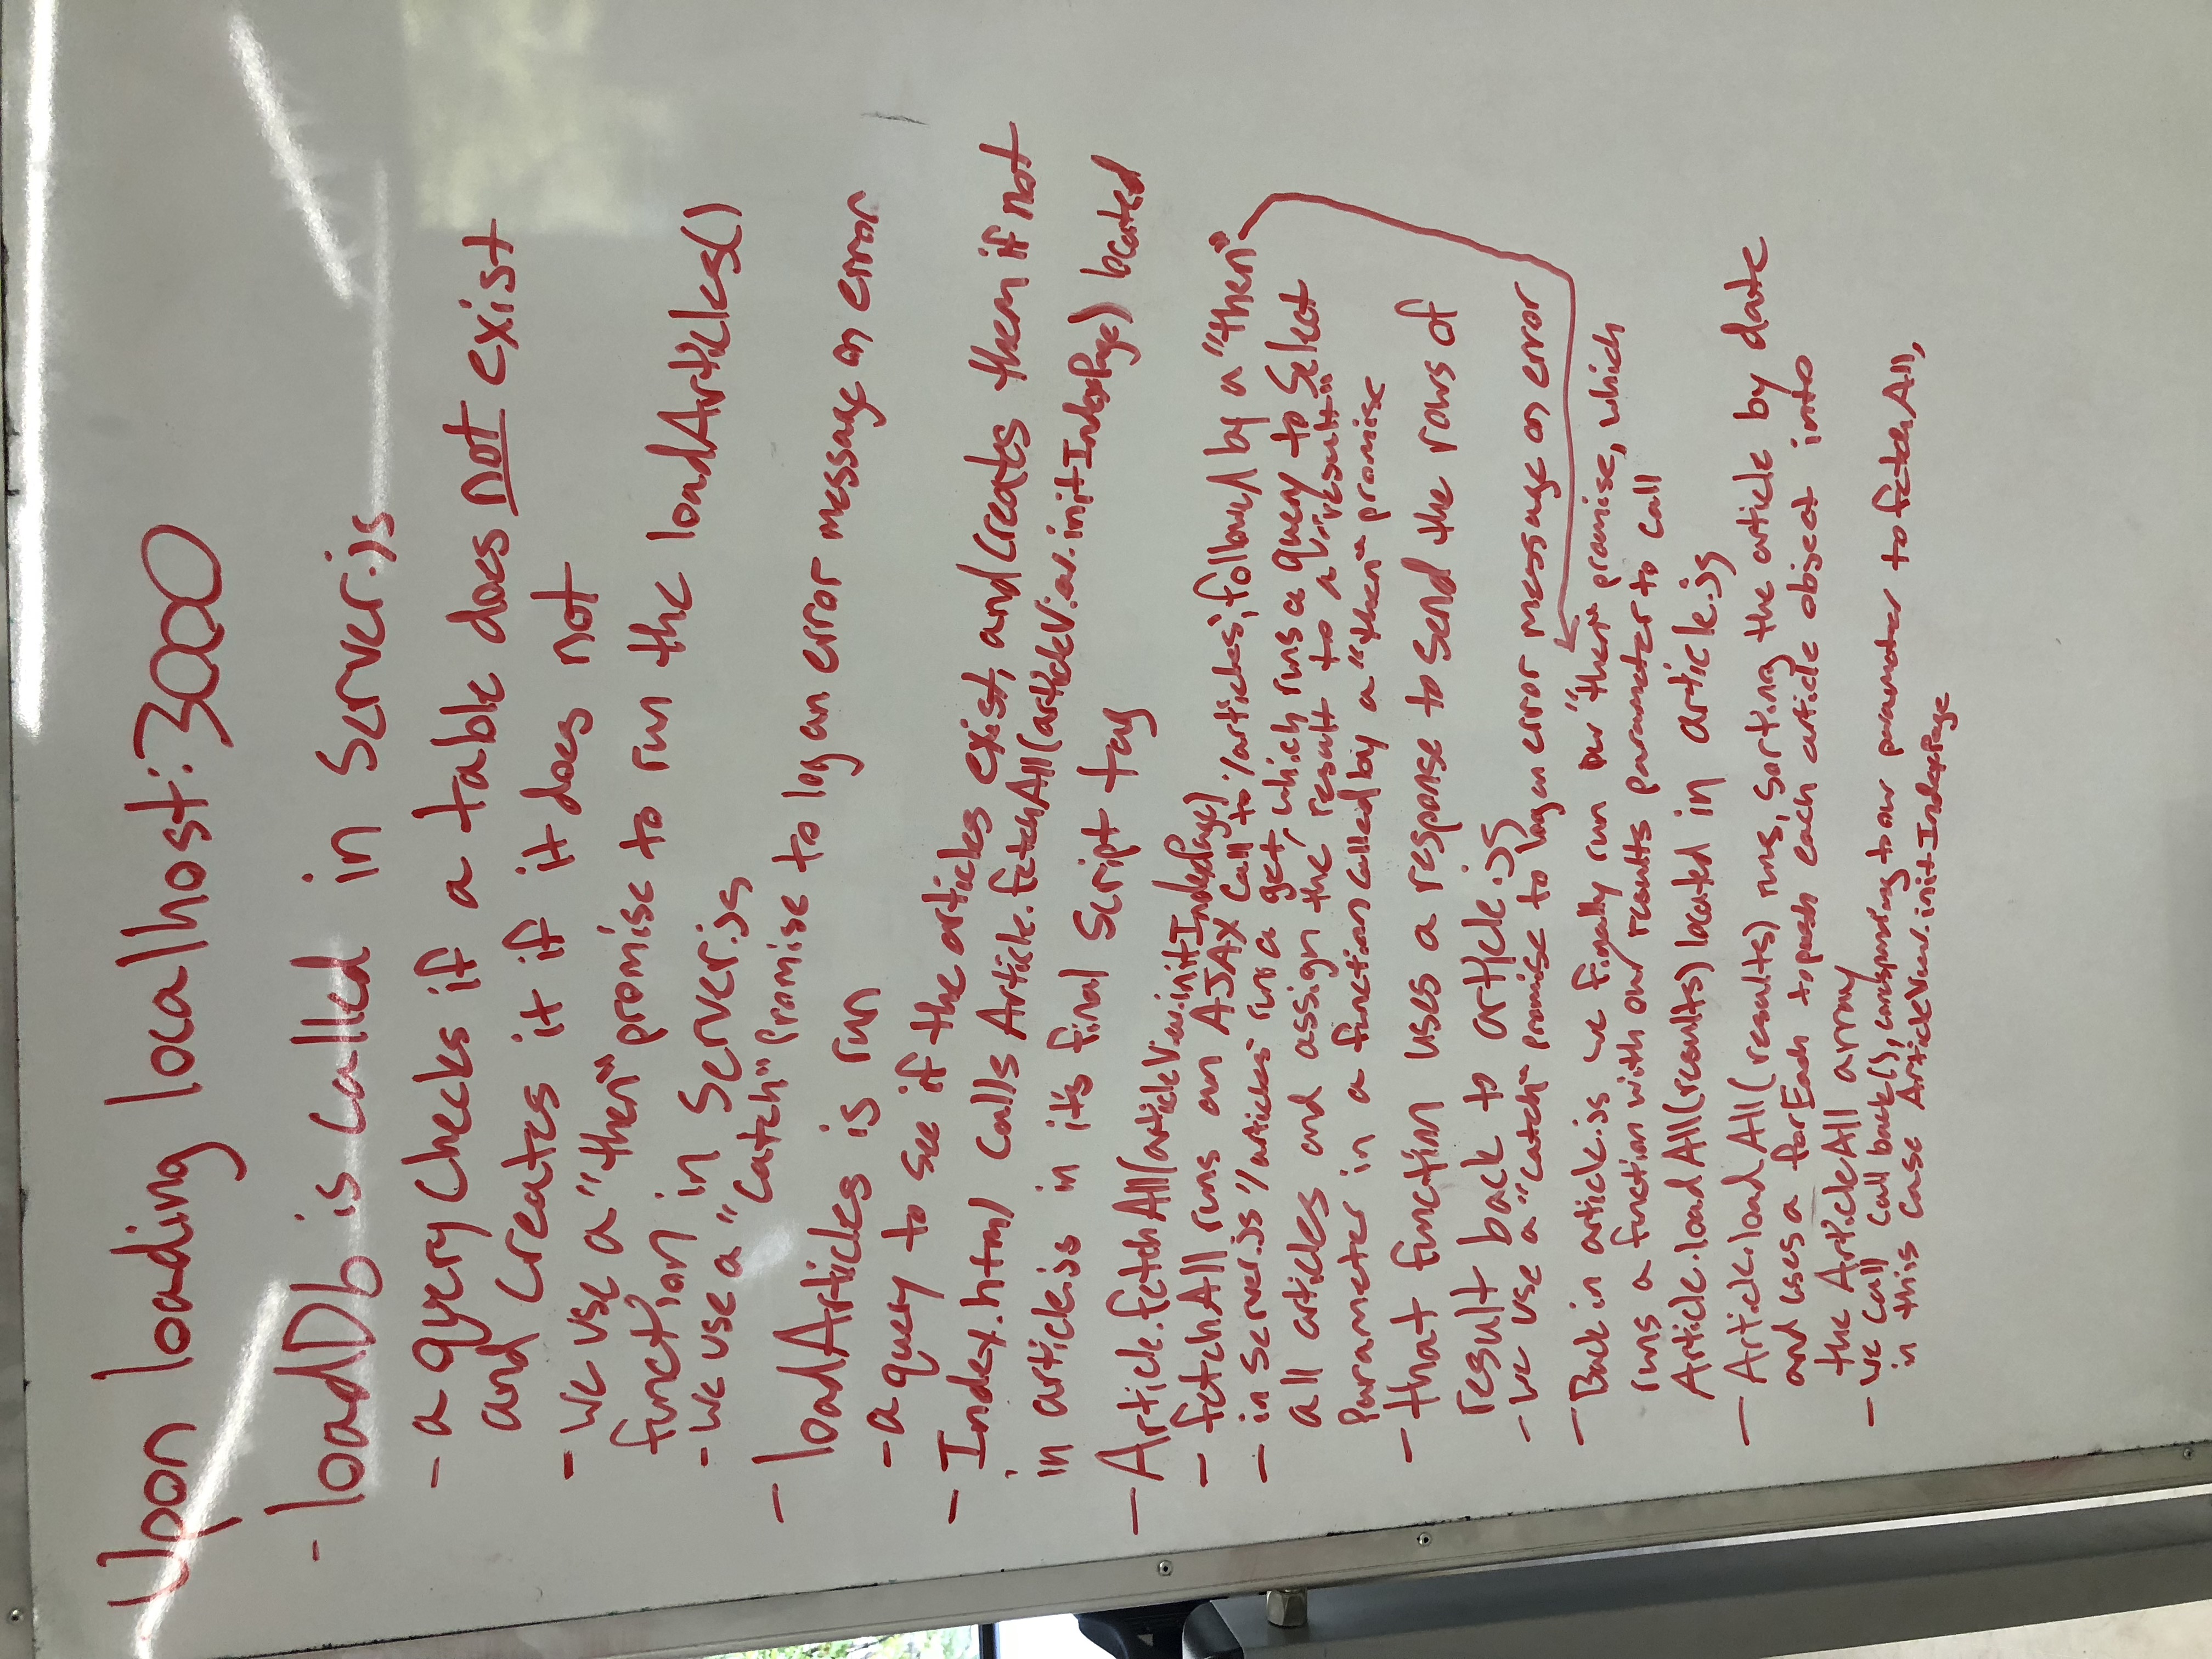 Upon loading localhost:3000
- loadDb is called in server.js
- a query checks if a table does not exist
and creates it if it does not
- we use a "then" promise to run the loadArticles()
function in server.js
- we use a "catch" promise to log an error message on error
- loadArticles is run
- a query to see if the articles exist, and creates them if not
- Index.html calls Article.fetchAll(articleView.initIndexPage) located
in article.js in it's final script tag
- Article.fetchAll(articleView.initIndexPage)
- fetchAll runs an AJAX call to '/articles', followed by a "then"
- in server.js '/articles' runs a get, which runs a query to select
all articles and assign the result to a "result"
parameter in a function called by a "then" promise
- that function uses a response to send the rows of
result back to article.js
- we use a "catch" promise to log an error message on error
- Back in article.js we finally run our "then" promise, which
runs a function with our results parameter to call
Article.loadAll(results) located in article.js
- Article.loadAll(results) runs, sorting the article by date
and uses a forEach to push each article object into
the ArticleAll array
- we call callback(), corresponding to our parameter to fetchAll,
in this case ArticleView.initIndexPage